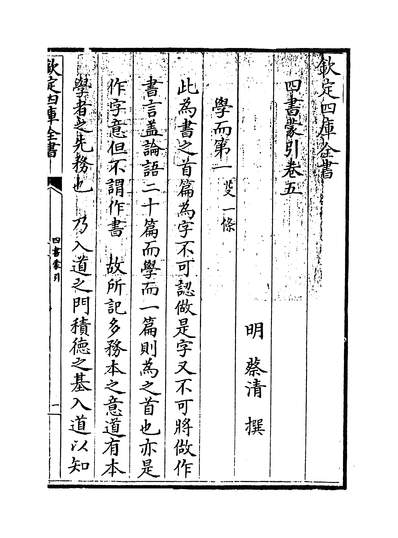 欽定四庫全書
四書蒙引卷五
明 蔡清 撰
學而第一 芟一條
此為書之首篇為字不可認做是字又不可將做作
書言蓋論語二十篇而學而一篇則為之首也亦是
作字意但不謂作書 故所記多務本之意道有本
學者之先務也 乃入道之門積德之基入道以知
欽定四庫全書
四書蒙引
一